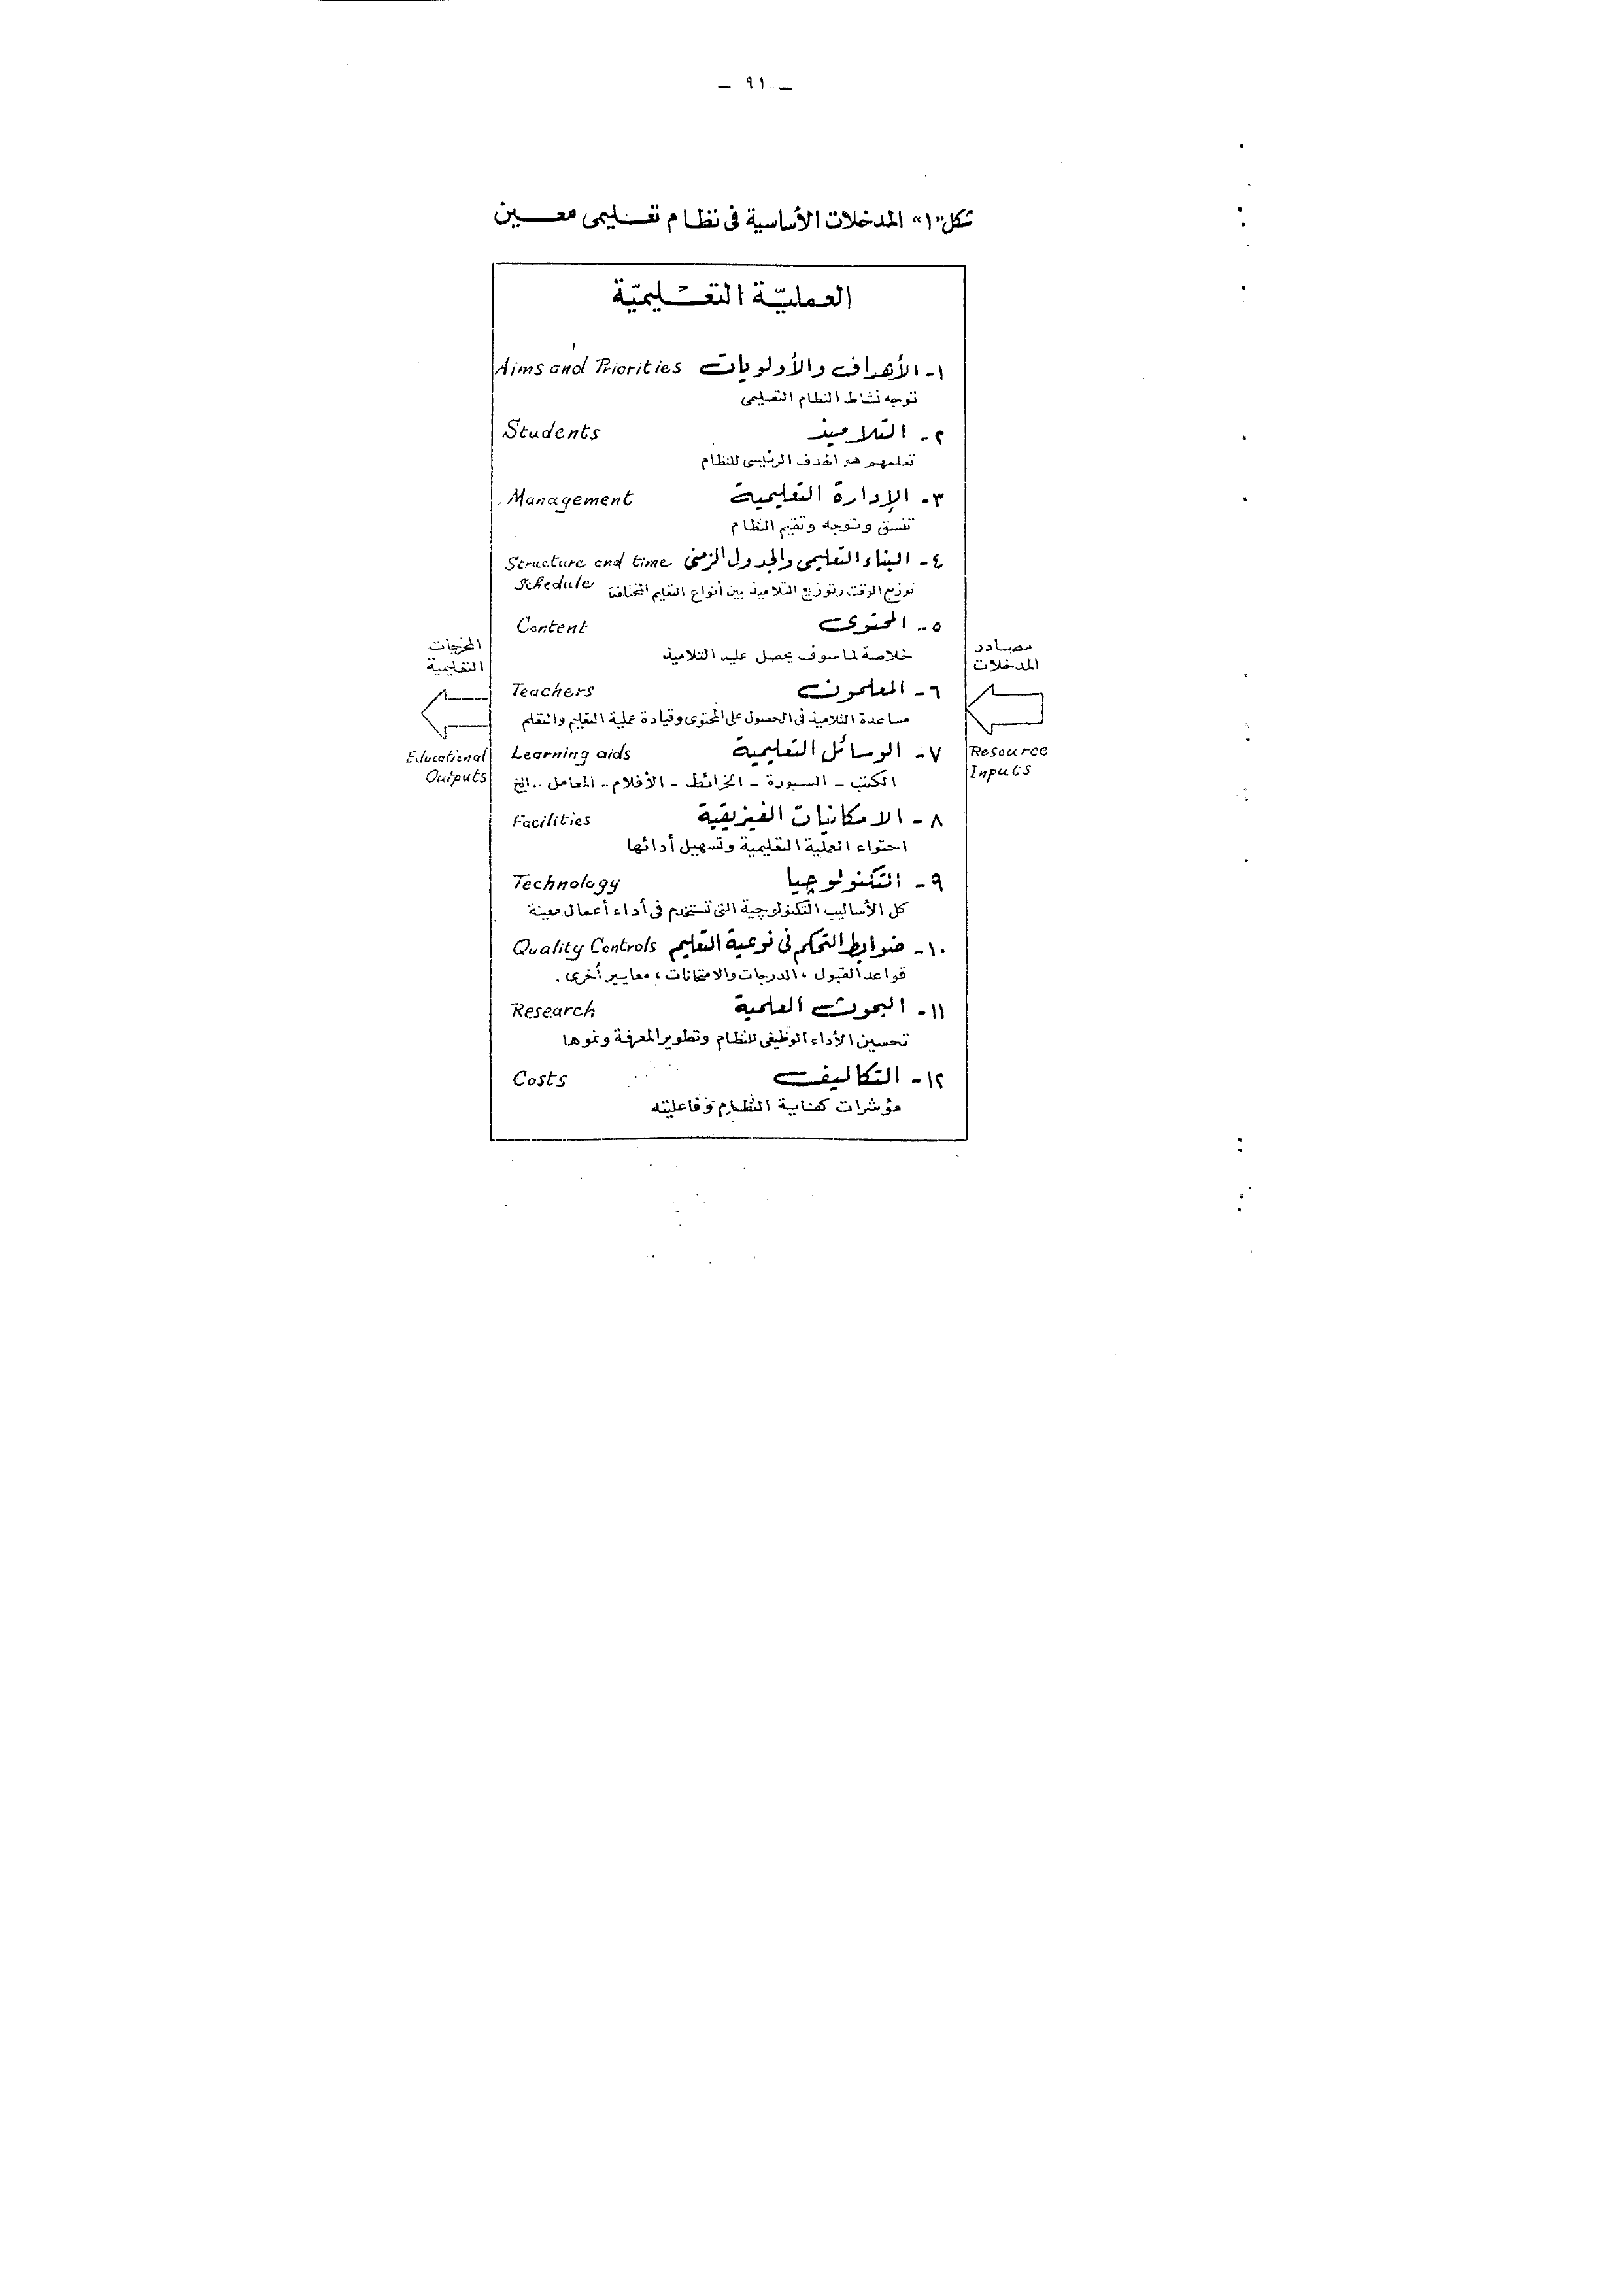 – ٩١ –
شكل "١" المدخلات الأساسية فى نظام تعليمى معين
العمليّة التعليميّة
١- الأهداف والأولويات Aims and Priorities
توجه نشاط النظام التعليمى
٢- التلاميذ Students
تعلمهم هو الهدف الرئيسى للنظام
٣- الإدارة التعليمية Management
تنسق وتوجه وتقيم النظام
٤- البناء التعليمى والجدول الزمنى Structure and time
Schedule
توزيع الوقت وتوزيع التلاميذ بين أنواع التعليم المختلفة
٥- المحتوى Content
خلاصة لما سوف يحصل عليه التلاميذ
٦- المعلمون Teachers
مساعدة التلاميذ فى الحصول على المحتوى وقيادة عملية التعليم والتعلم
٧- الوسائل التعليمية Learning aids
الكتب - السبورة - الخرائط - الأفلام .. المعامل .. الخ
٨- الامكانيات الفيزيقية Facilities
احتواء العملية التعليمية وتسهيل أدائها
٩- التكنولوچيا Technology
كل الأساليب التكنولوچية التى تستخدم فى أداء أعمال معينة
١٠- ضوابط التحكم فى نوعية التعليم Quality Controls
قواعد القبول ، الدرجات والامتحانات ، معايير أخرى .
١١- البحوث العلمية Research
تحسين الأداء الوظيفى للنظام وتطوير المعرفة ونموها
١٢- التكاليف Costs
مؤشرات كفاية النظام وفاعليته
مصادر
المدخلات
Resource
Inputs
المخرجات
التعليمية
Educational
Outputs